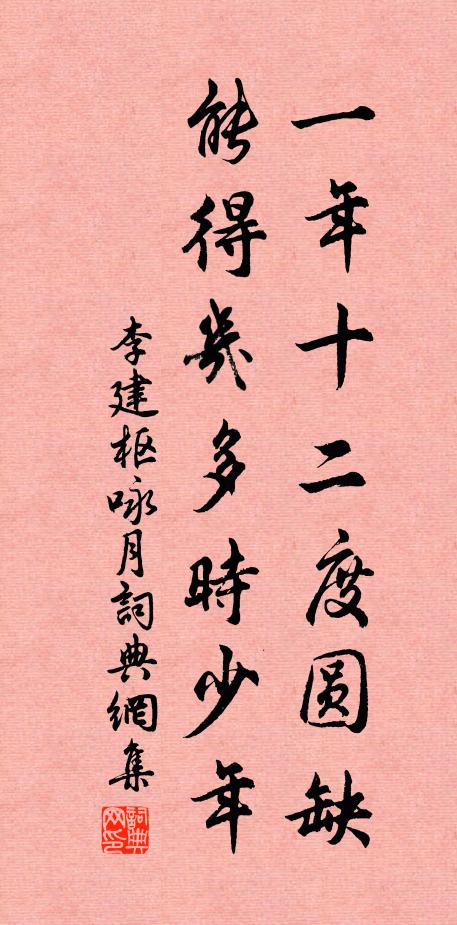 一年十二度圆缺
能得幾多時少年
李建枢咏月詞典網集
詞典网印